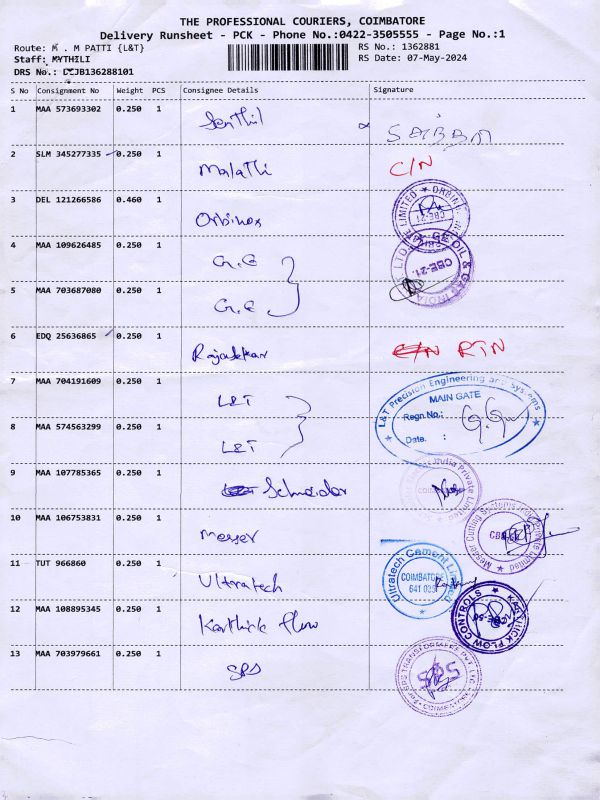 THE PROFESSIONAL COURIERS, COIMBATORE
Delivery Runsheet - PCK - Phone No.:0422-3505555 - Page No.:1
Route: M . M PATTI {L&T}
RS No.: 1362881
Staff: MYTHILI
RS Date: 07-May-2024
DRS No.: CJB136288101
S No Consignment No Weight PCS Consignee Details Signature
1 MAA 573693302 0.250 1 Senthil SAIRAM
2 SLM 345277335 0.250 1 Malathi C/N
3 DEL 121266586 0.460 1 Orbinox
CBE-21
4 MAA 109626485 0.250 1 G.E
GE OIL & GAS INDIA
CBE-21.
5 MAA 703687080 0.250 1 G.E
6 EDQ 25636865 0.250 1 Rajasekar C/N RTN
7 MAA 704191609 0.250 1 L&T
L&T Precision Engineering and Systems
MAIN GATE
Regn.No.:
Date. :
8 MAA 574563299 0.250 1 L&T
9 MAA 107785365 0.250 1 Schneider
India Private Limited
10 MAA 106753831 0.250 1 Messer
Messer Cutting Systems India Private Limited
11 TUT 966860 0.250 1 Ultratech
Ultratech Cement Limited
COIMBATORE
641 029
12 MAA 108895345 0.250 1 Karthick flow
KARTHICK FLOW CONTROLS
13 MAA 703979661 0.250 1 SPS
For SPS TRANSFORMERS PVT. LTD.
SPS
COIMBATORE